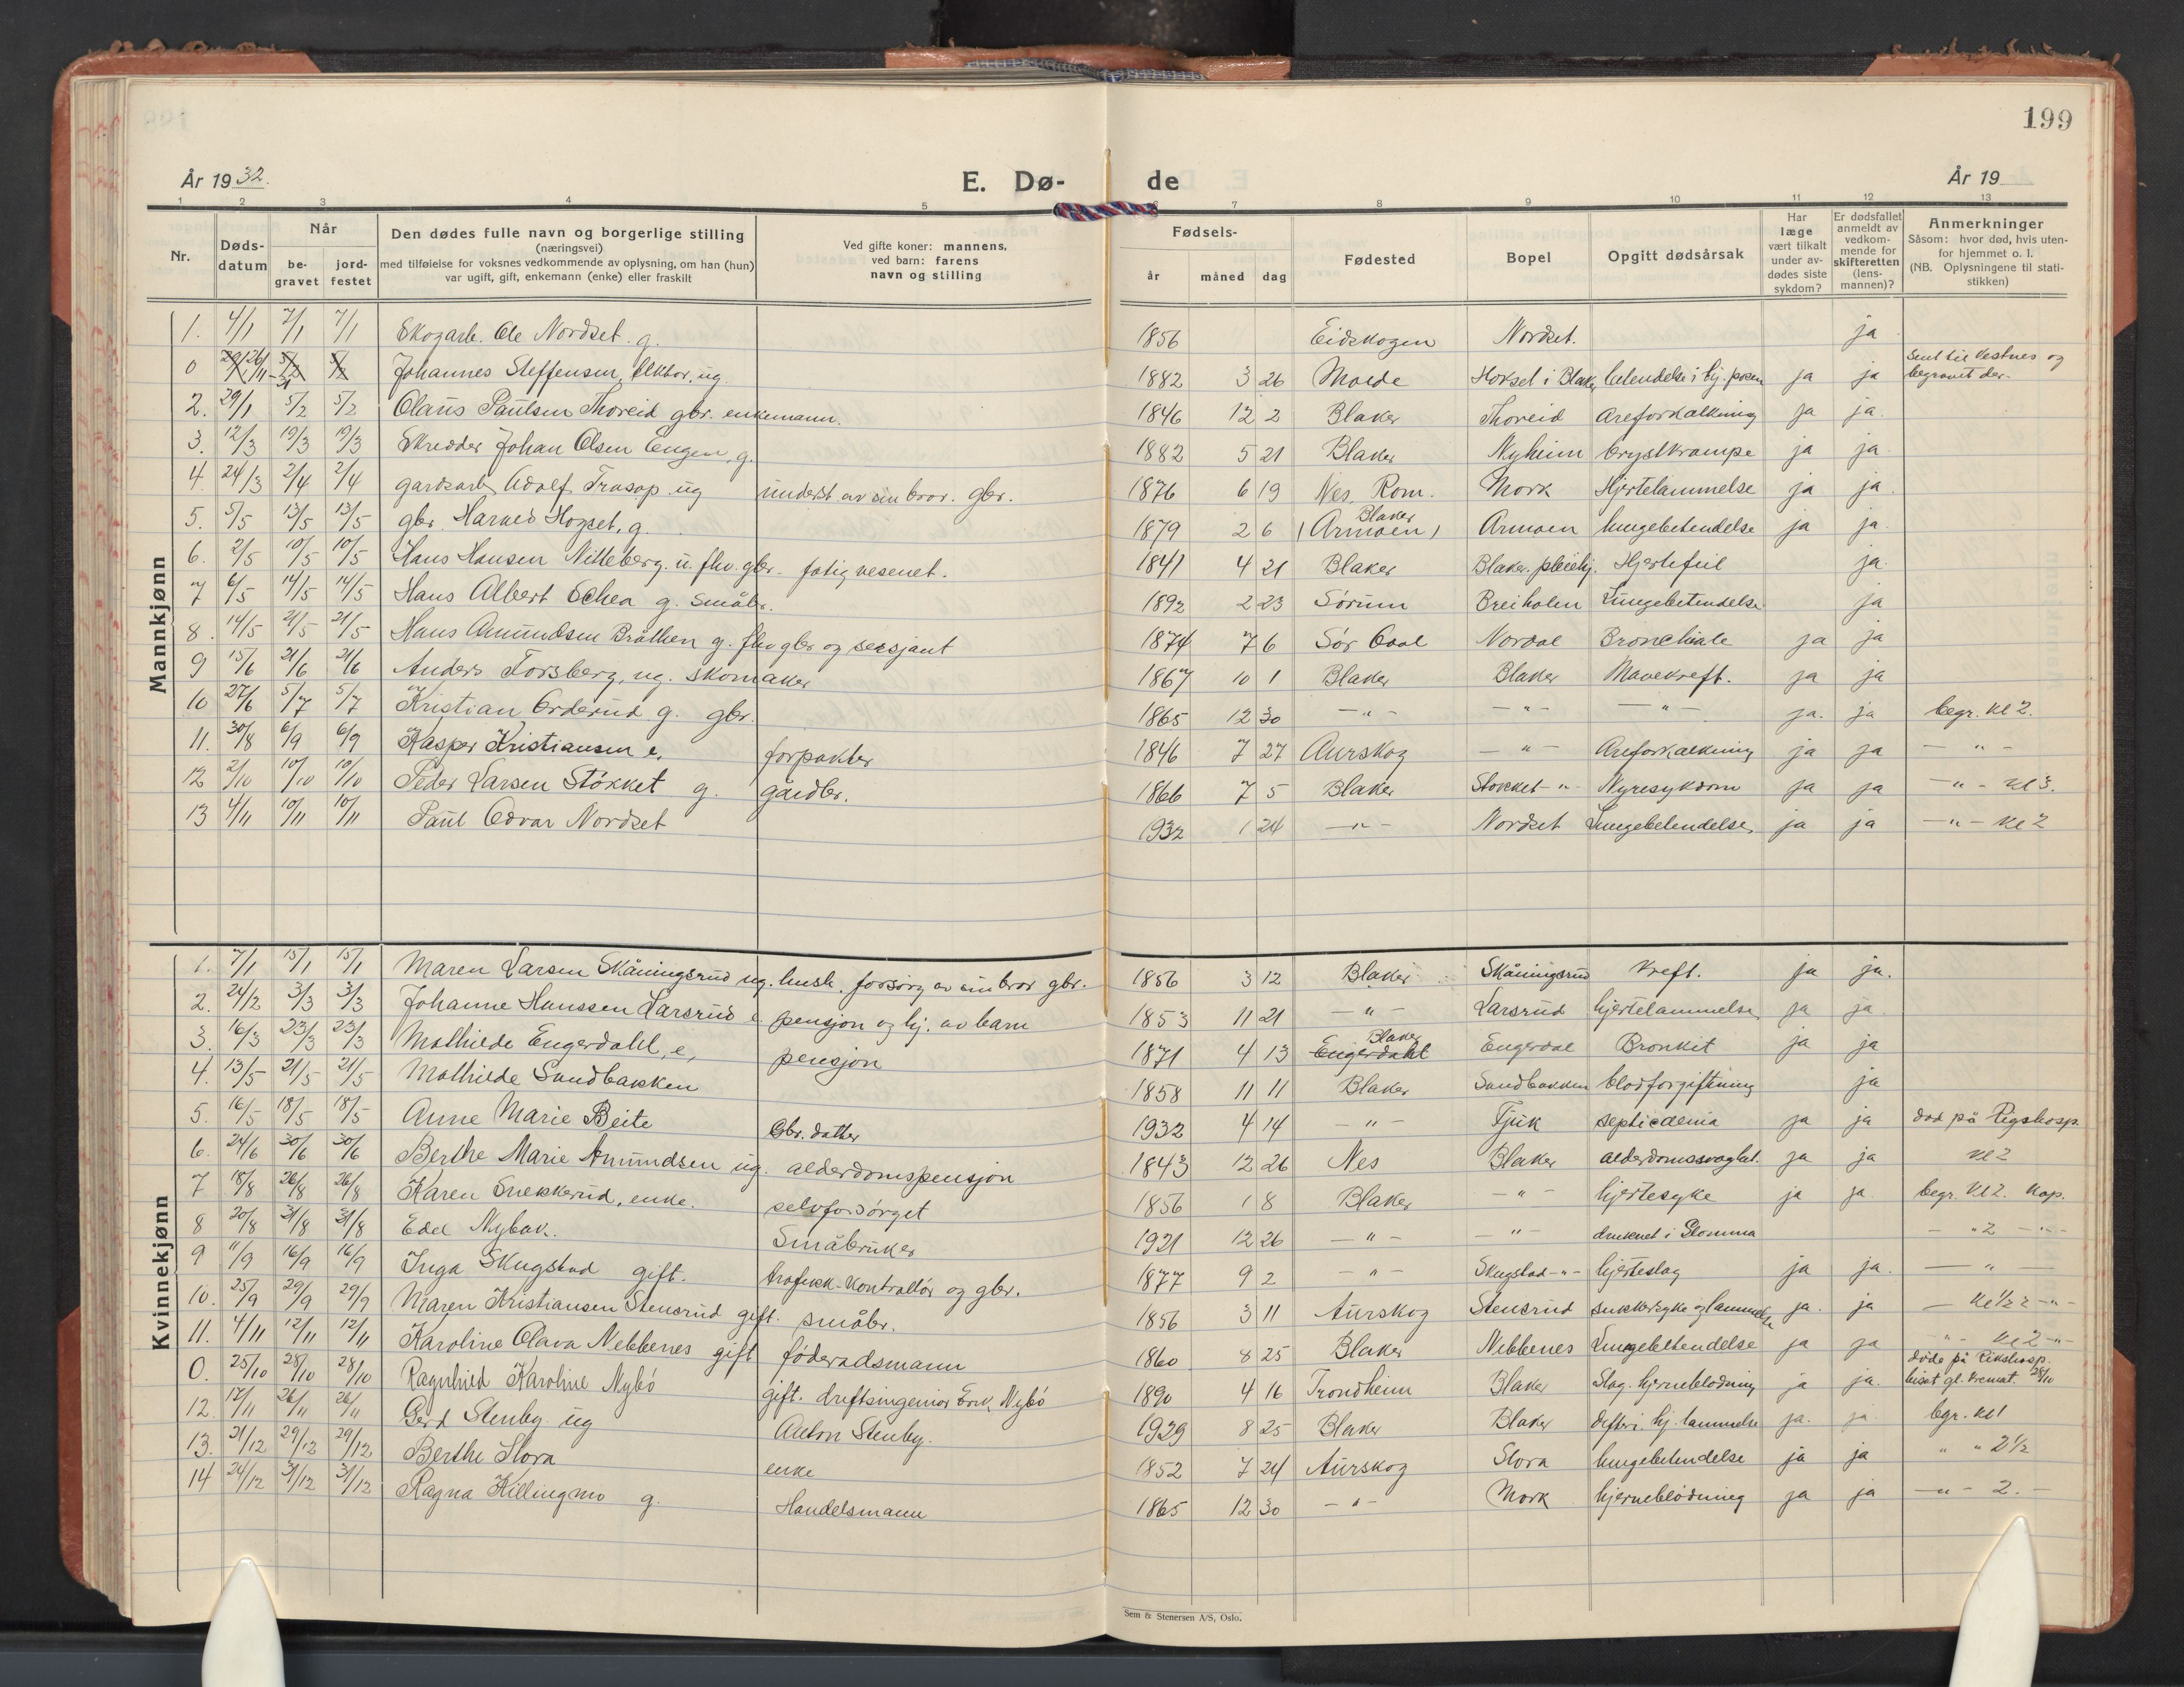 199
År 1932.
E. Dø-
de
År 19
1 2 3 4 5 6 7 8 9 10 11 12 13
Nr.
Døds-
datum
Når
be-
gravet
jord-
festet
Den dødes fulle navn og borgerlige stilling
(næringsvei)
med tilføielse for voksnes vedkommende av oplysning, om han (hun)
var ugift, gift, enkemann (enke) eller fraskilt
Ved gifte koner: mannens,
ved barn: farens
navn og stilling
Fødsels-
år måned dag
Fødested
Bopel
Opgitt dødsårsak
Har
læge
vært tilkalt
under av-
dødes siste
sykdom?
Er dødsfallet
anmeldt av
vedkom-
mende for
skifteretten
(lens-
mannen)?
Anmerkninger
Såsom: hvor død, hvis uten-
for hjemmet o. l.
(NB. Oplysningene til stati-
stikken)
Mannkjønn
1. 4/1 7/1 7/1 Skogarb. Ole Nordset. g. 1856 Eidskogen Nordset. ja
0 Johannes Steffensen, ug. 1882 3 26 Molde Hoksel i Blaker betendelse i hj. posen ja ja sent til Vestnes og begravet der.
2. 29/1 5/2 5/2 Olaus Paulsen Thoreid gbr. enkemann. 1846 12 2 Blaker Thoreid Areforkalkning ja ja.
3. 12/3 19/3 19/3 Skredder Johan Olsen Engen, g. 1882 5 21 Blaker Nyheim brystkrampe ja ja.
4. 24/3 2/4 2/4 gardsarb. Adolf Trusop ug underst. av sin bror. gbr. 1876 6 19 Nes Rom. Mork Hjertelammelse ja ja.
5. 5/5 13/5 13/5 gbr. Harald Hogset, g. 1879 2 6 Blaker (Armoen) Armoen lungebetendelse ja ja.
6. 2/5 10/5 10/5 Hans Hansen Nitteberg. u. fhv. gbr. fatigvesenet. 1841 4 21 Blaker Blaker pleiehj. Hjertefeil ja.
7 6/5 14/5 14/5 Hans Albert Schea g. småbr. 1892 2 23 Sørum Breiholen Lungebetendelse ja
8. 14/5 21/5 21/5 Hans Amundsen Bråthen g. fhv gbr og sersjant 1874 7 6 Sør Odal Nordal Bronchiale ja ja
9 15/6 21/6 21/6 Anders Forsberg, ug. skomaker 1867 10 1 Blaker Blaker Mavekreft. ja ja
10 27/6 5/7 5/7 Kristian Orderud g. gbr. 1865 12 30 -"- -"- -"- ja. ja begr. kl 2.
11. 30/8 6/9 6/9 Kasper Kristiansen e. forpakter 1846 7 27 Aurskog -"- Areforkalkning ja ja -"-
12 2/10 10/10 10/10 Peder Larsen Stokket g. gårdbr. 1866 7 5 Blaker Stokket -"- Nyresykdom ja ja -"- kl 3.
13 4/11 10/11 10/11 Paul Odvar Nordset 1932 1 24 -"- Nordset Lungebetendelse ja ja -"- kl 2
Kvinnekjønn
1. 7/1 15/1 15/1 Maren Larsen Skåningsrud ug. hush. forsørg av sin bror gbr. 1856 3 12 Blaker Skåningsrud Kreft. ja ja.
2. 24/2 3/3 3/3 Johanne Hanssen Larsrud e. pensjon og hj. av barn 1853 11 21 -"- Larsrud hjertelammelse ja ja
3. 16/3 23/3 23/3 Mathilde Engerdahl, e, pensjon 1871 4 13 Blaker Engerdahl Engerdal Bronkit ja ja
4. 13/5 21/5 21/5 Mathilde Sandbakken 1858 11 11 Blaker Sandbakken blodforgiftning ja
5. 16/5 18/5 18/5 Anne Marie Beite Gbr. datter 1932 4 14 -"- septicæmia ja ja død på Rigshosp.
6. 24/6 30/6 30/6 Berthe Marie Amundsen ug. alderdomspensjon 1843 12 26 Nes Blaker alderdomssvaghet. ja ja kl 2
7 18/8 26/8 26/8 Karen Snekkerud, enke. selvforsørget 1856 1 8 Blaker -"- hjertesyke ja ja begr. kl 2. kap.
8 20/8 31/8 31/8 Edel Nybak. Småbruker 1921 12 26 -"- -"- druknet i Glomma -"2 -"-
9 11/9 16/9 16/9 Inga Skugstad gift. trafikk-kontrollør og gbr. 1877 9 2 -"- Skugstad -"- hjerteslag ja ja. -"-
10. 25/9 29/9 29/9 Maren Kristiansen Stensrud gift. småbr. 1856 3 11 Aurskog Stensrud sukkersyke og lammelse ja. ja - kl 1/2 2 -"-
11. 4/11 12/11 12/11 Karoline Olava Nebbenes gift føderadsmann 1860 8 25 Blaker Nebbenes Lungebetendelse ja ja -"- kl 2 -"-
0. 25/10 28/10 28/10 Ragnhild Karoline Nybø gift. driftsingeniør Eirik Nybø 1890 4 16 Trondheim Blaker Slag. hjerneblødning ja ja. døde på Rikshosp. biset gl. kremat. 28/10
12. 17/11 26/11 26/11 Gerd Stenby ug Anton Stenby. 1929 8 25 Blaker Blaker difteri. hj. lammelse ja. ja begr. kl 1
13. 21/12 29/12 29/12 Berthe Slora enke 1852 7 24 Aurskog Slora lungebetendelse ja ja " " 2 1/2
14 24/12 31/12 31/12 Ragna Killingmo g. Handelsmann 1865 12 30 -"- Mork hjerneblødning ja ja -"- 2. -
Sem & Stenersen A/S, Oslo.